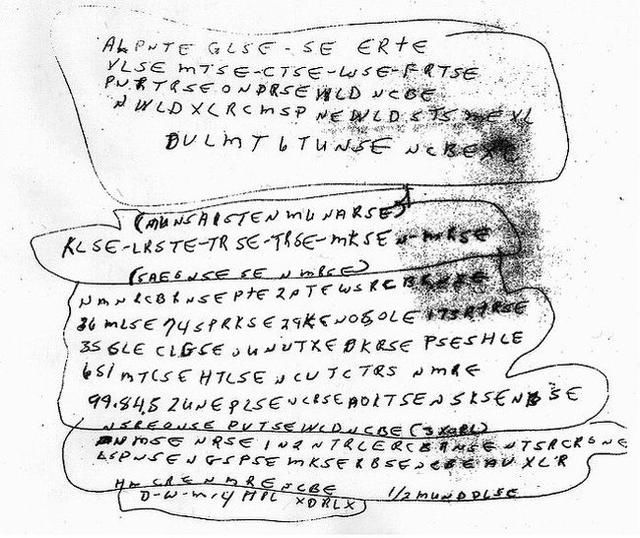 ALPNTE GLSE-SE ERTE
VLSE MTSE-CTSE-WSE-FRTSE
PNRTRSEONDRSEWLD NCBE
NWLDXLRCMSP NEWLDSTSMEXL
DULMT6TUNSE NCBEXC
(MUNSARSTENMUNARSE)
KLSE-LRSTE-TRSE-TRSE-MKSEN-MRSE
(SAEGNSESE NMRSE)
NMNRCBRNSEPTE2PTEWSRCBRNSE
36MLSE74SPRKSE29KENOSOLE173RTRSE
35GLE CLGSEUNUTXEDKRSE PSESHLE
651MTCSE HTLSENCUTCTRS NMRE
99.84.52UNEPLSENCRSEAOLTSENSKSENBSE
NSREONSE PUTSEWLDNCBE(3XORL)
NMSE NRSE IN2NTRLERCBRNSENTSRCRSNE
LSPNSENGSPSE MKSERBSENCBEAUXLR
HMCRENMRENCBE
D-W-M-Y HPL XDRLX 1/2MUNDDLSE